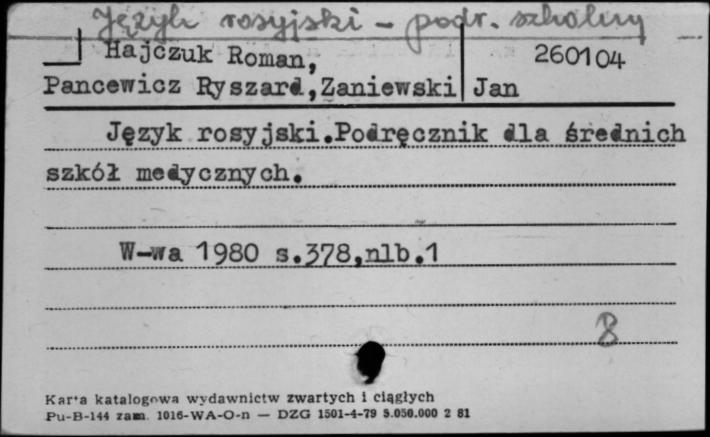 Język rosyjski - podr. szkolny
Hajczuk Roman, 260104
Pancewicz Ryszard, Zaniewski Jan
Język rosyjski. Podręcznik dla średnich
szkół medycznych.
W-wa 1980 s.378,nlb.1
B
Karta katalogowa wydawnictw zwartych i ciągłych
Pu-B-144 zam. 1016-WA-O-n — DZG 1501-4-79 5.050.000 2 81